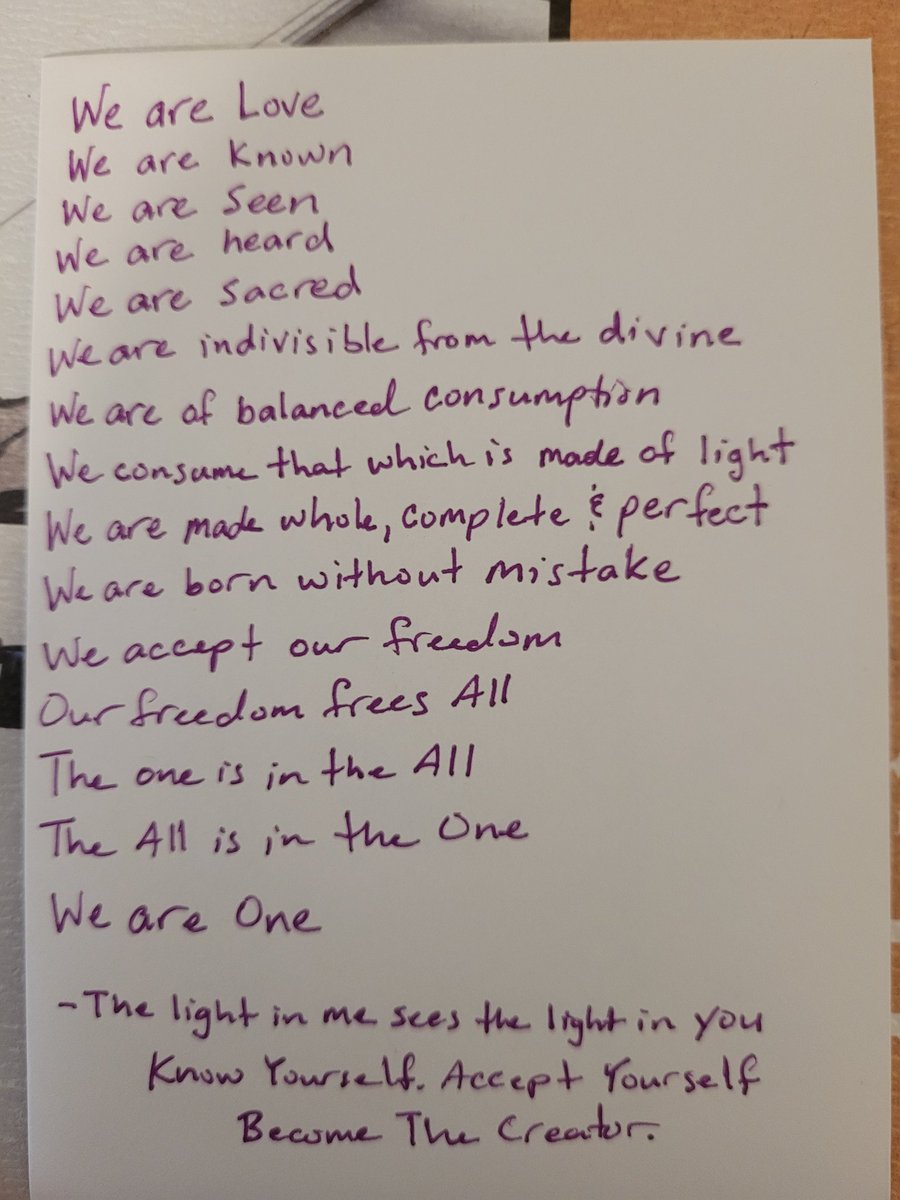 We are Love
We are Known
We are Seen
We are heard
We are sacred
We are indivisible from the divine
We are of balanced consumption
We consume that which is made of light
We are made whole, complete & perfect
We are born without mistake
We accept our freedom
Our freedom frees All
The one is in the All
The All is in the One
We are One
-The light in me sees the light in you
Know Yourself. Accept Yourself
Become The Creator.